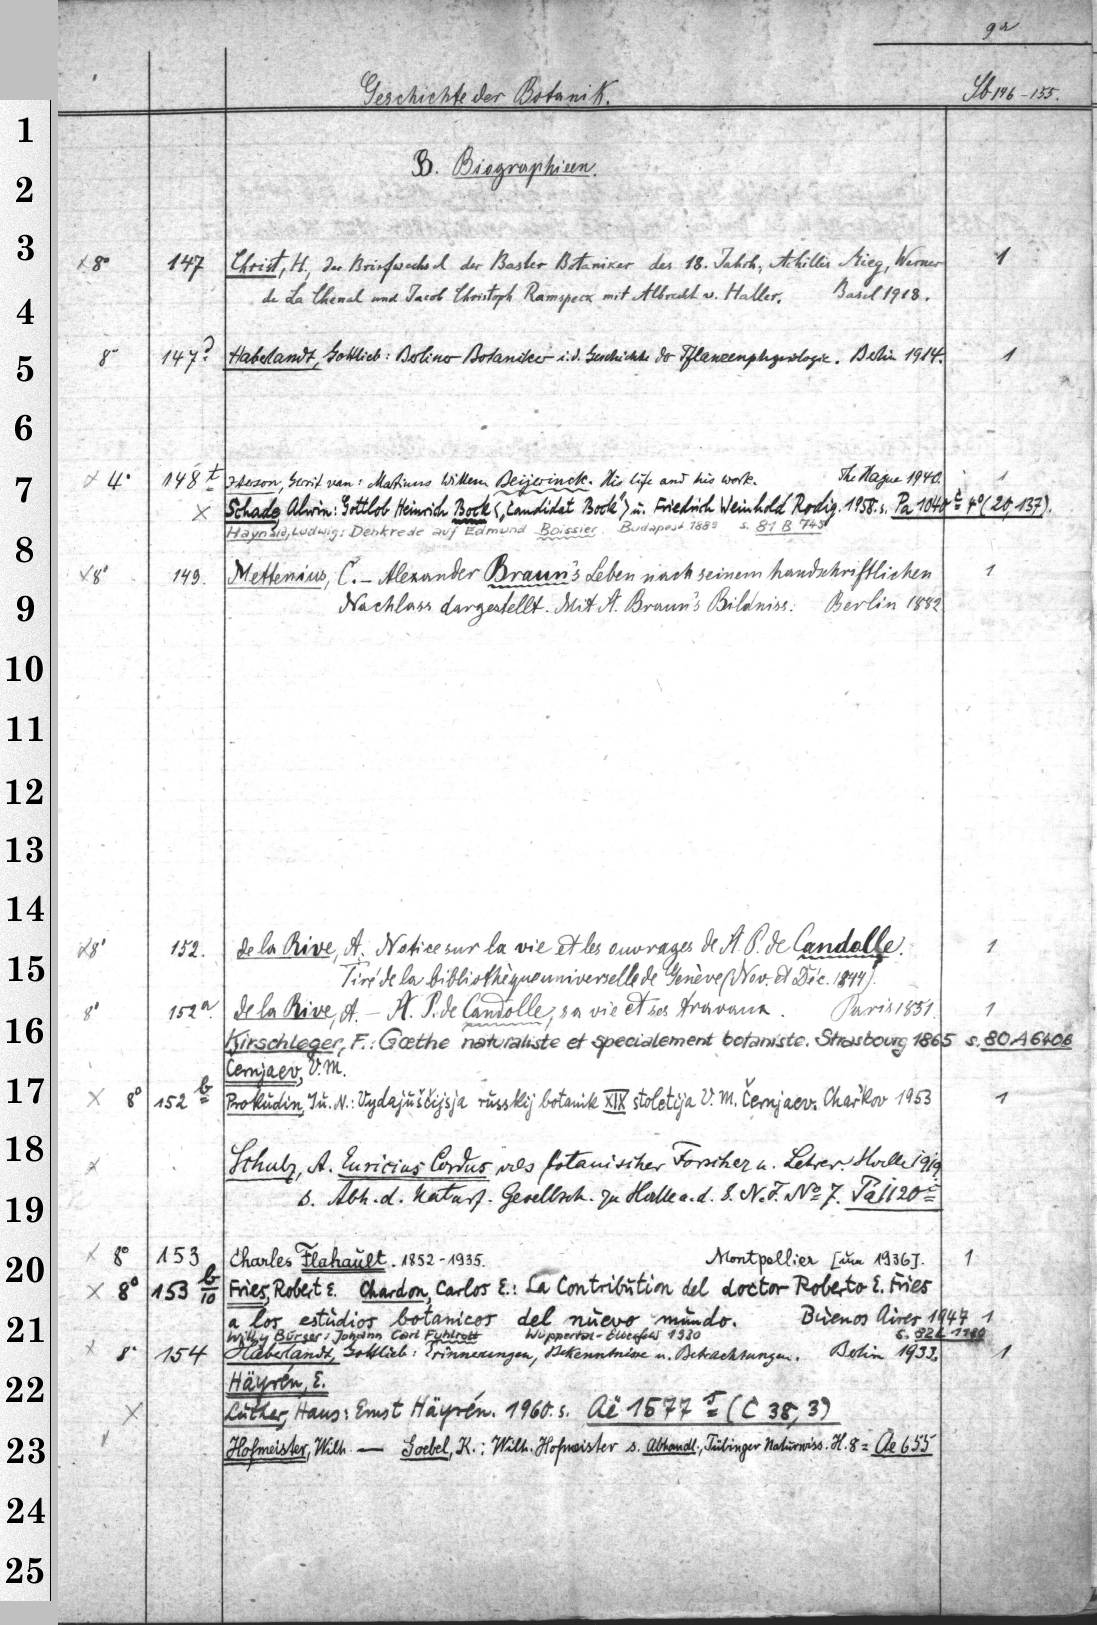 9a
Geschichte der Botanik. Sb 146-155.
1
B. Biographieen.
2
3
x 8° 147 Christ, H., der Briefwechsel der Basler Botaniker des 18. Jahrh., Achilles Mieg, Werner 1
de La Chenal und Jacob Christoph Ramspeck mit Albrecht v. Haller. Basel 1918.
4
8° 147 Haberlandt, Gottlieb: Berliner Botaniker i. d. Geschichte der Pflanzenphysiologie. Berlin 1914. 1
5
6
x 4° 148 t Iterson, Gerrit van: Martinus Willem Beijerinck. His life and his work. The Hague 1940. 1
7
x Schade, Alwin: Gottlob Heinrich Bock („Candidat Bock") u. Friedrich Weinhold Rodig. 1958. s. Pa 1040 c 4° (20, 137).
Haynald, Ludwig: Denkrede auf Edmund Boissier. Budapest 1889 s. 81 B 745
8
x 8° 149. Mettenius, C. – Alexander Braun's Leben nach seinem handschriftlichen 1
9
Nachlass dargestellt. Mit A. Braun's Bildniss. Berlin 1882
10
11
12
13
14
x 8° 152. de la Rive, A. Notice sur la vie et les ouvrages de A. P. de Candolle. 1
15
Tiré de la bibliothèque universelle de Genève (Nov. et Déc. 1844)
8° 152a de la Rive, A. – A. P. de Candolle, sa vie et ses travaux. Paris 1851. 1
16
Kirschleger, F.: Gœthe naturaliste et specialement botaniste. Strasbourg 1865 s. 80 A 6406
Černjaev, V. M.
17
x 8° 152 b Prokudin, Ju. N.: Vydajuščijsja russkij botanik XIX stoletija V. M. Černjaev. Char'kov 1953 1
18
x Schulz, A. Euricius Cordus als botanischer Forscher u. Lehrer. Halle 1919
19
s. Abh. d. Naturf. Gesellsch. zu Halle a. d. S. N. F. No 7. Pa 1120 c
x 8° 153 Charles Flahault. 1852-1935. Montpellier [um 1936]. 1
20
x 8° 153 b/10 Fries, Robert E. Chardon, Carlos E.: La Contribution del doctor Roberto E. Fries
a los estudios botanicos del nuevo mundo. Buenos Aires 1947 1
21
Willy Bürger: Johann Carl Fuhlrott Wuppertal-Elberfeld 1930 s. 82 L 1980
x 8° 154 Haberlandt, Gottlieb: Erinnerungen, Bekenntnisse u. Betrachtungen. Berlin 1933. 1
22
Häyrén, E.
x Luther, Hans: Ernst Häyrén. 1960. s. Aë 1577 r (C 38, 3)
23
Hofmeister, Wilh. — Goebel, K.: Wilh. Hofmeister s. Abhandl., Tübinger Naturwiss. H. 8 = Ae 655
24
25